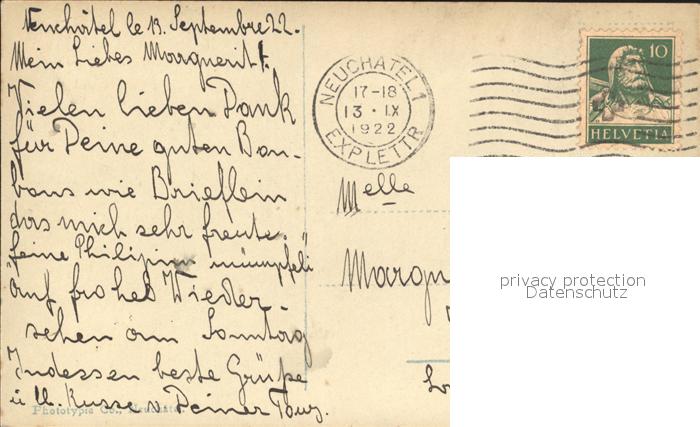 Neuchâtel le 13. Septembre 22.
Mein Liebes Marguerit
Vielen lieben Dank
für Deine guten Bon-
bons wie Brieflein
das mich sehr freute.
feine Philipin
auf frohes Wieder-
sehen am Sonntag
Indessen beste Grüße
u Deiner
Phototypie Co., Neuchâtel.
NEUCHATEL 1
17-18
13 · IX
1922
EXP. LETTR.
10
HELVETIA
Melle
Margu
privacy protection
Datenschutz